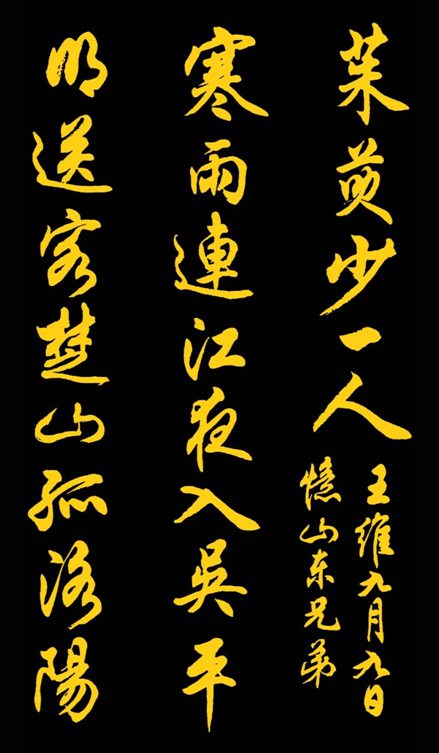 茱萸少一人
王維九月九日
憶山东兄弟
寒雨連江夜入吳平
明送客楚山孤洛陽